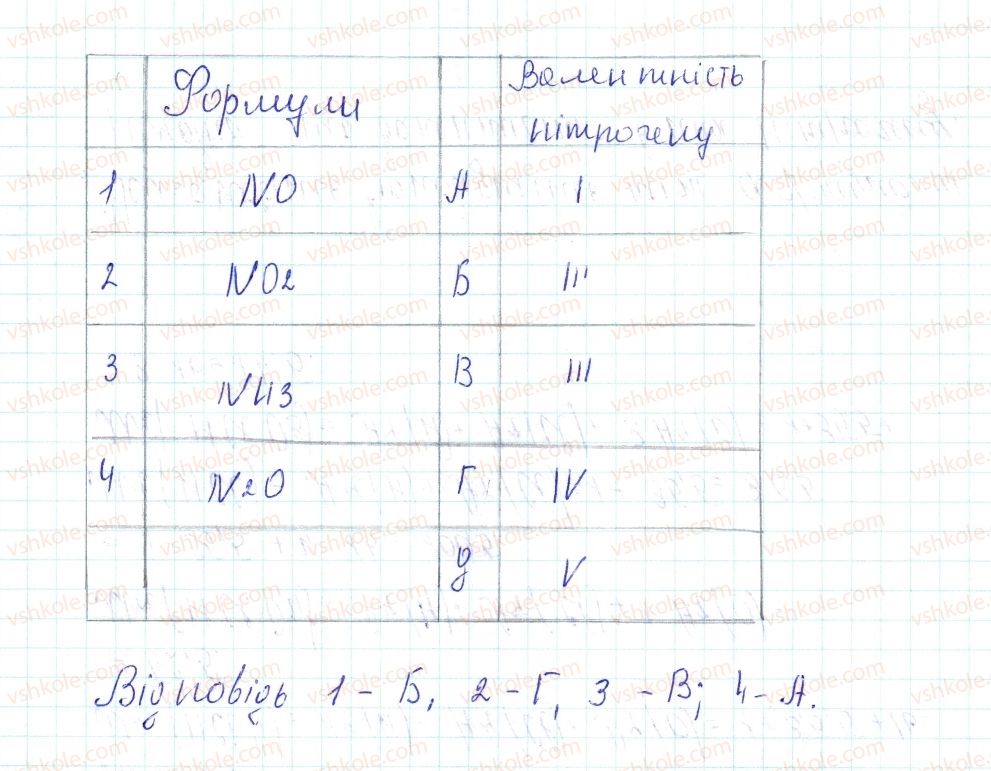 Формули Валентність нітрогену
1 NO А I
2 NO2 Б III
3 NH3 В III
4 N2O Г IV
Д V
Відповідь 1 - Б, 2 - Г, 3 - В; 4 - А.
vshkole.com